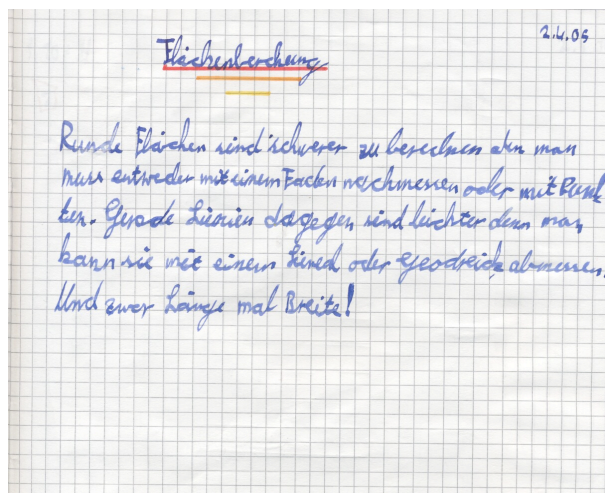 2.4.05
Flächenberchung
Runde Flächen sind schwerer zu berechnen den man
muss entweder mit einem Faden nachmessen oder mit Punk
ten. Gerade Lienien dagegen sind leichter denn man
kann sie mit einem Lineal oder Geodreick abmessen.
Und zwar Länge mal Breite!